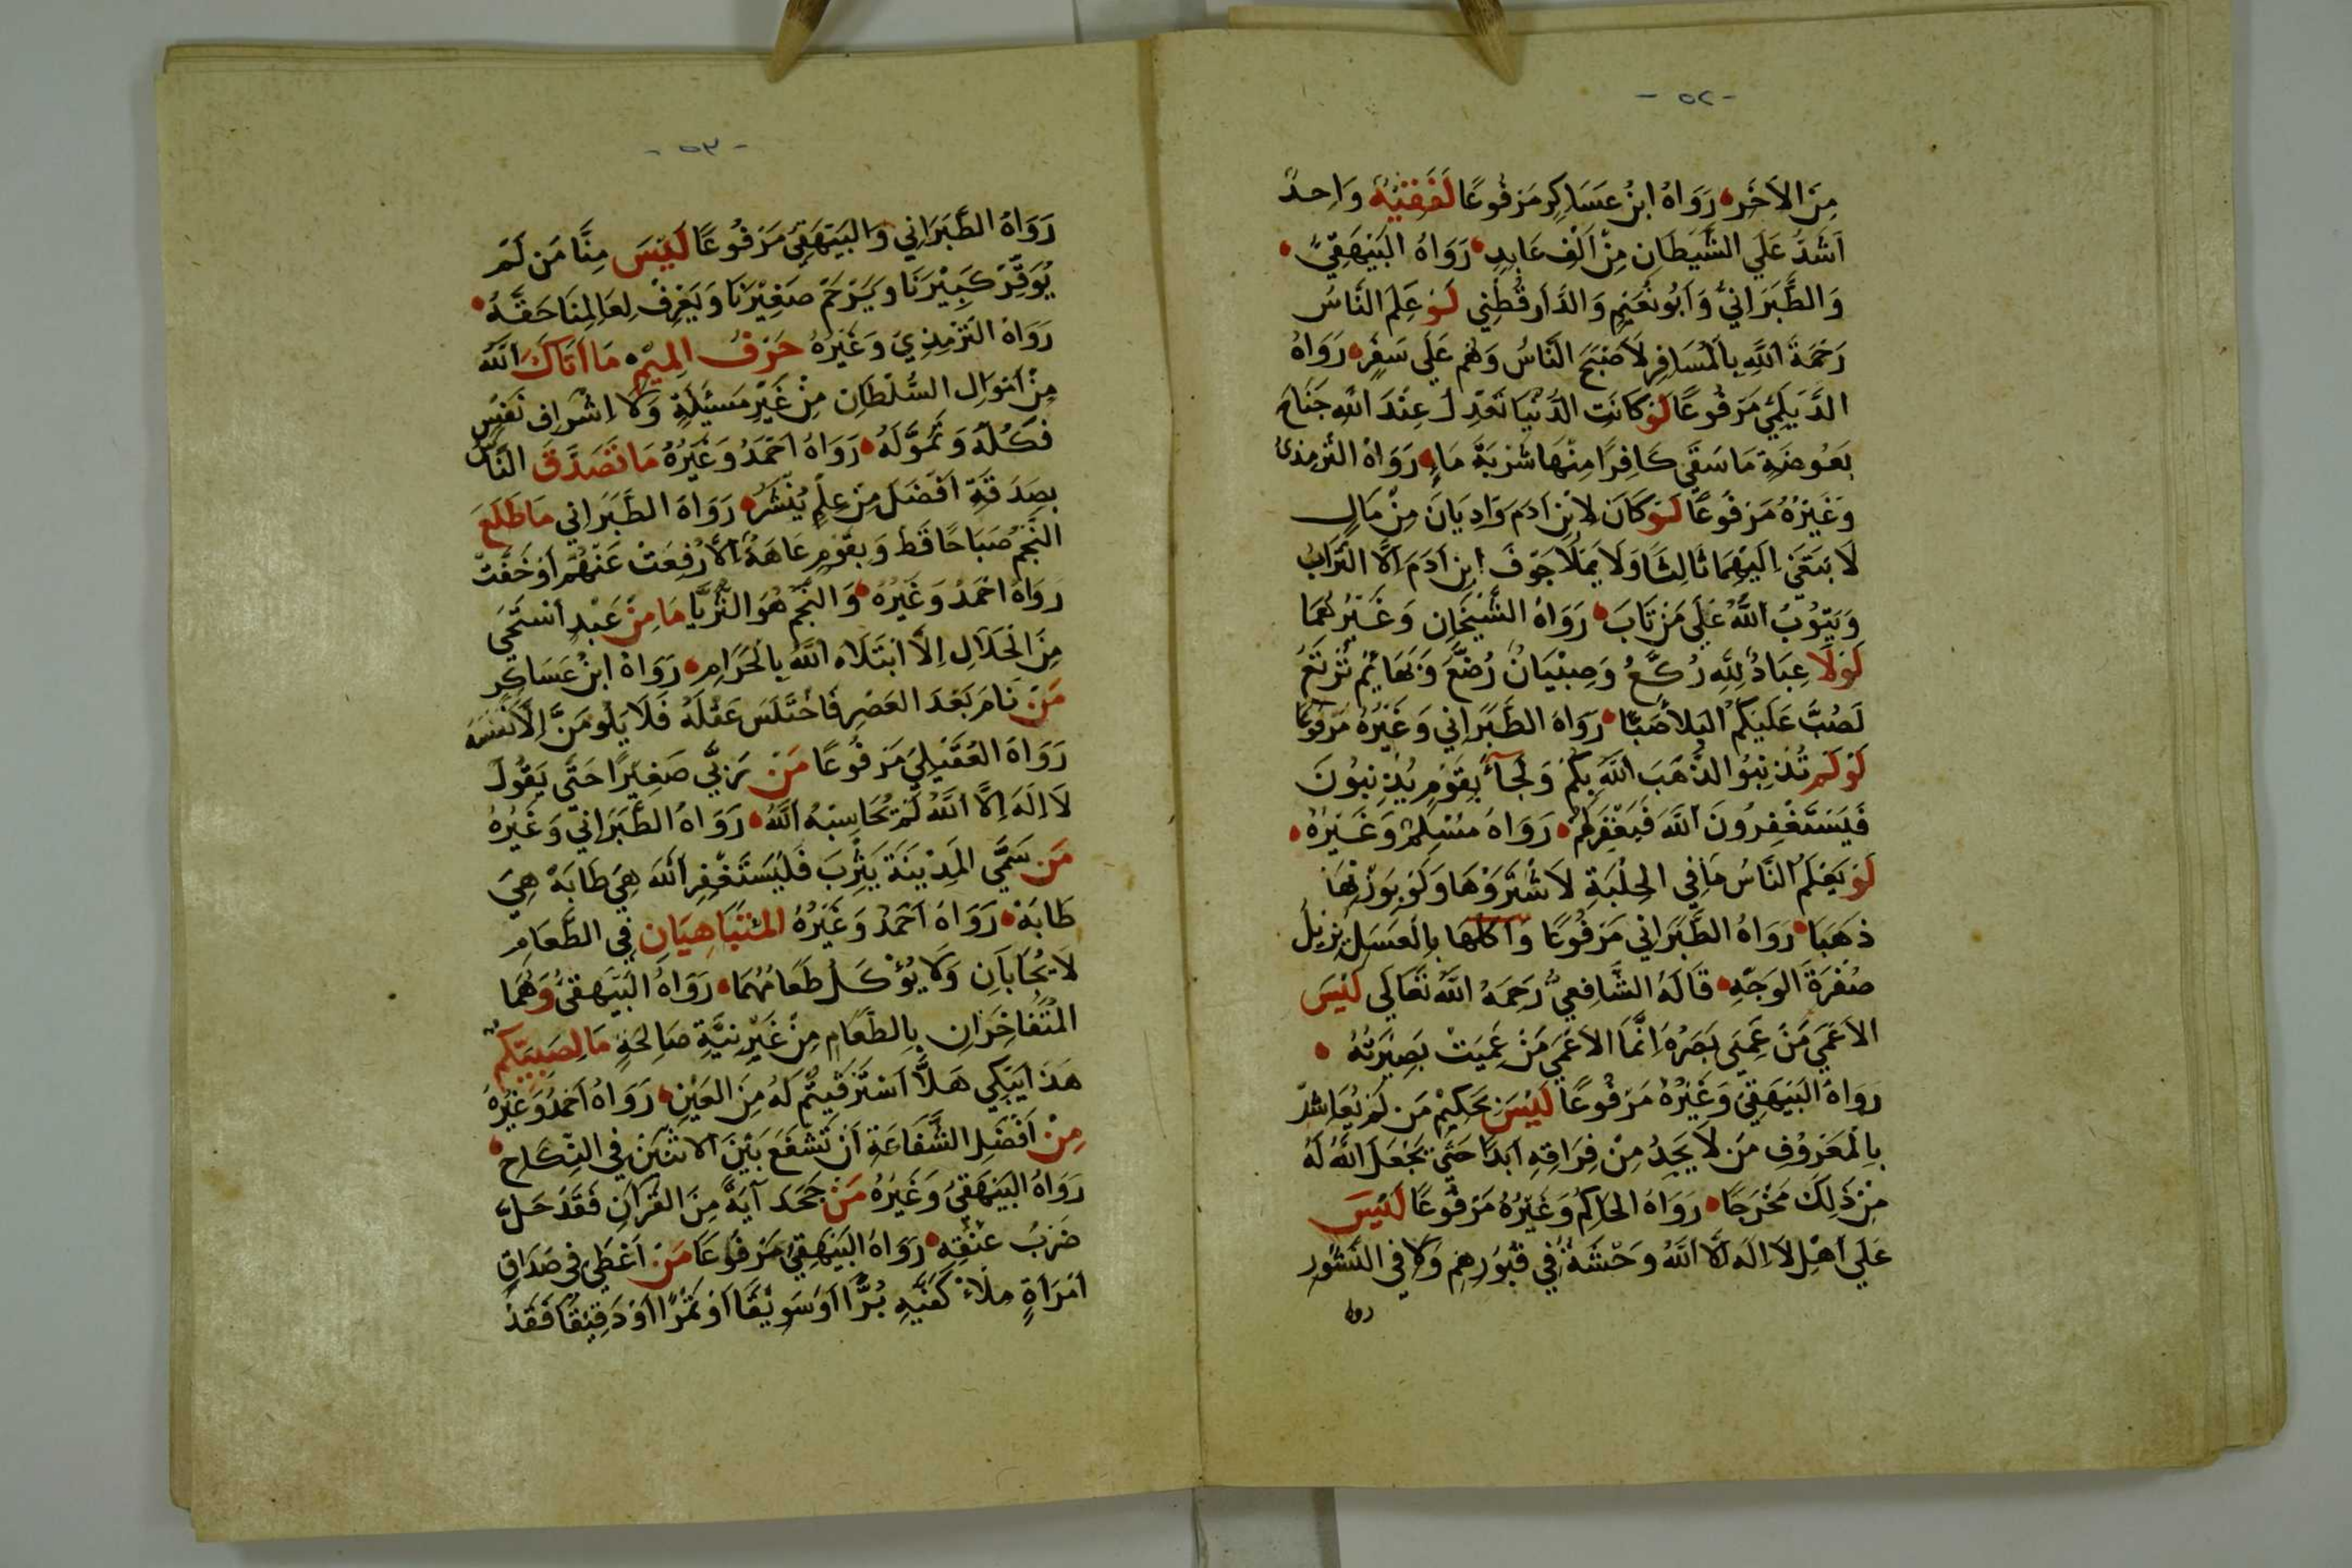 - ٥٢ -
مِنَ الآخَرِ رَوَاهُ ابْنُ عَسَاكِر مَرْفُوعًا لَفَقِيْهٌ وَاحِدٌ
اَشَدُّ عَلَي الشَّيْطَانِ مِنْ اَلْفِ عَابِدٍ رَوَاهُ الْبَيْهَقِيُّ
وَالطَّبَرَانِيُّ وَاَبُو نُعَيْمٍ وَالدَّارَقُطْنِي لَوْ عَلِمَ النَّاسُ
رَحْمَةَ اللَّهِ بِالْمُسَافِرِ لَاَصْبَحَ النَّاسُ وَهُم عَلَي سَفَرٍ رَوَاهُ
الدَّيْلَمِيُّ مَرْفُوعًا لَوْ كَانَتِ الدُّنْيَا تَعْدِلُ عِنْدَ اللَّهِ جَنَاحَ
بَعُوضَةٍ مَا سَقَي كَافِرًا مِنْهَا شَرْبَةَ مَاءٍ رَوَاهُ التِّرْمِذِيُ
وَغَيْرُهُ مَرْفُوعًا لَوْ كَانَ لِابْنِ ادَمَ وَادِيَانَ مِنْ مَالٍ
لَابْتَغَي اِلَيْهِمَا ثَالِثًا وَلَا يَمْلَأُ جَوْفَ ابنِ اَدَمَ اِلَّا التُّرَابُ
وَيَتُوبُ اللَّهُ عَلَي مَنْ تَابَ رَوَاهُ الشَّيْخَانِ وَغَيْرُهُمَا
لَوْلَا عِبَادٌ لِلَّهِ رُكَّعٌ وَصِبْيَانٌ رُضَّعٌ وَبَهَائِمُ تَرْتَعُ
لَصُبَّ عَلَيْكُمُ الْبَلَاُ صَبًّا رَوَاهُ الطَّبَرَانِي وَغَيْرُهُ مَرْفُوعًا
لَوْ لَم تُذْنِبُوا لَذَهَبَ اللَّهُ بِكُمْ وَلَجَآءَ بِقَوْمٍ يُذْنِبُونَ
فَيَسْتَغْفِرُونَ اللَّهَ فَيَغْفِرُ لَهُمْ رَوَاهُ مُسْلِمٌ وَغَيْرُهُ
لَوْ يَعْلَمُ النَّاسُ مَا فِي الْحِلْبَةِ لَاشْتَرَوْهَا وَلَوْ بِوَزْنِهَا
ذَهَبًا رَوَاهُ الطَّبَرَانِي مَرْفُوعًا وَاَكْلُهَا بِالْعَسَلِ يُزِيلُ
صُفْرَةَ الْوَجْهِ قَالَهُ الشَّافِعِيُّ رَحِمَهُ اللَّهُ تَعَالَي لَيْسَ
الاَعْمَي مَنْ عَمِيَ بَصَرُهُ اِنَّمَا الاَعْمَي مَنْ عَمِيَتْ بَصِيْرَتُهُ
رَوَاهُ الْبَيْهَقِيُ وَغَيْرُهُ مَرْفُوعًا لَيْسَ بِحَكِيْمٍ مَن لَمْ يُعَاشِرْ
بِالْمَعْرُوفِ مَن لَا يَجِدُ مِنْ فِرَاقِهِ اَبَدًا حَتَّي يَجْعَلَ اللَّهُ لَهُ
مِنْ ذَلِكَ مَخْرَجًا رَوَاهُ الْحَاكِمُ وَغَيْرُهُ مَرْفُوعًا لَيْسَ
عَلَي اَهْلِ لَا اِلَهَ اِلَّا اللَّهُ وَحْشَةٌ فِي قُبُورِهِمْ وَلَا فِي النُّشُورِ
رواه
- ٥٣ -
رَوَاهُ الطَّبَرَانِي وَالْبَيْهَقِيُ مَرْفُوعًا لَيْسَ مِنَّا مَن لَمْ
يُوَقِّرْ كَبِيْرَنَا وَيَرْحَمْ صَغِيْرَنَا وَيَعْرِفْ لِعَالِمِنَا حَقَّهُ
رَوَاهُ التِّرْمِذِيُ وَغَيْرُهُ حَرْفُ الْمِيْمِ مَا اَتَاكَ اللَّهُ
مِنْ اَمْوَالِ السُّلْطَانِ مِنْ غَيْرِ مَسْئَلَةٍ وَلَا اِشْرَافِ نَفْسٍ
فَكُلْهُ وَتَمَوَّلْهُ رَوَاهُ اَحْمَدُ وَغَيْرُهُ مَا تَصَدَّقَ النَّاسُ
بِصَدَقَةٍ اَفْضَلَ مِنْ عِلْمٍ يُنْشَرُ رَوَاهُ الطَّبَرَانِي مَا طَلَعَ
النَّجْمُ صَبَاحًا قَط وَبِقَوْمٍ عَاهَةٌ اِلَّا رُفِعَتْ عَنْهُمْ اَوْ خَفَّتْ
رَوَاهُ اَحْمَدُ وَغَيْرُهُ وَالنَّجْمُ هُوَ الثُّرَيَّا مَا مِنْ عَبْدٍ اسْتَحْيَي
مِنَ الْحَلَالِ اِلَّا ابْتَلَاهُ اللَّهُ بِالْحَرَامِ رَوَاهُ ابْنُ عَسَاكِر
مَنْ نَامَ بَعْدَ الْعَصْرِ فَاخْتُلِسَ عَقْلُهُ فَلَا يَلُومَنَّ اِلَّا نَفْسَهُ
رَوَاهُ الْعُقَيْلِيُ مَرْفُوعًا مَنْ رَبَّي صَغِيْرًا حَتَّي يَقُولَ
لَا اِلَهَ اِلَّا اللَّهُ لَمْ يُحَاسِبْهُ اللَّهُ رَوَاهُ الطَّبَرَانِيُّ وَغَيْرُهُ
مَن سَمَّي الْمَدِيْنَةَ يَثْرِبَ فَلْيَسْتَغْفِرِ اللَّهَ هِيَ طَابَةْ هِيَ
طَابَةْ رَوَاهُ اَحْمَدُ وَغَيْرُهُ الْمُتَبَاهِيَانِ فِي الطَّعَامِ
لَا يُجَابَانِ وَلَا يُؤْكَلُ طَعَامُهُمَا رَوَاهُ الْبَيْهَقِيُ وَهُمَا
الْمُتَفَاخِرَانِ بِالطَّعَامِ مِنْ غَيْرِ نِيَّةٍ صَالِحَةٍ مَا لِصَبِيِّكُمْ
هَذَا يَبْكِي هَلَّا اَسْتَرْقَيْتُمْ لَهُ مِنَ الْعَيْنِ رَوَاهُ اَحْمَدُ وَغَيْرُهُ
مِنْ اَفْضَلِ الشَّفَاعَةِ اَنْ تَشْفَعَ بَيْنَ الاثْنَيْنِ فِي النِّكَاحِ
رَوَاهُ الْبَيْهَقِيُ وَغَيْرُهُ مَنْ جَحَدَ آيَةً مِنَ الْقُرْآنِ فَقَدْ حَلَّ
ضَرْبُ عُنُقِهِ رَوَاهُ الْبَيْهَقِيُ مَرْفُوعًا مَنْ اَعْطَي فِي صَدَاقِ
امْرَأَةٍ مِلْاءَ كَفَّيْهِ بُرًّا اَوْ سَوِيْقًا اَوْ تَمْرًا اَوْ دَقِيْقًا فَقَدْ